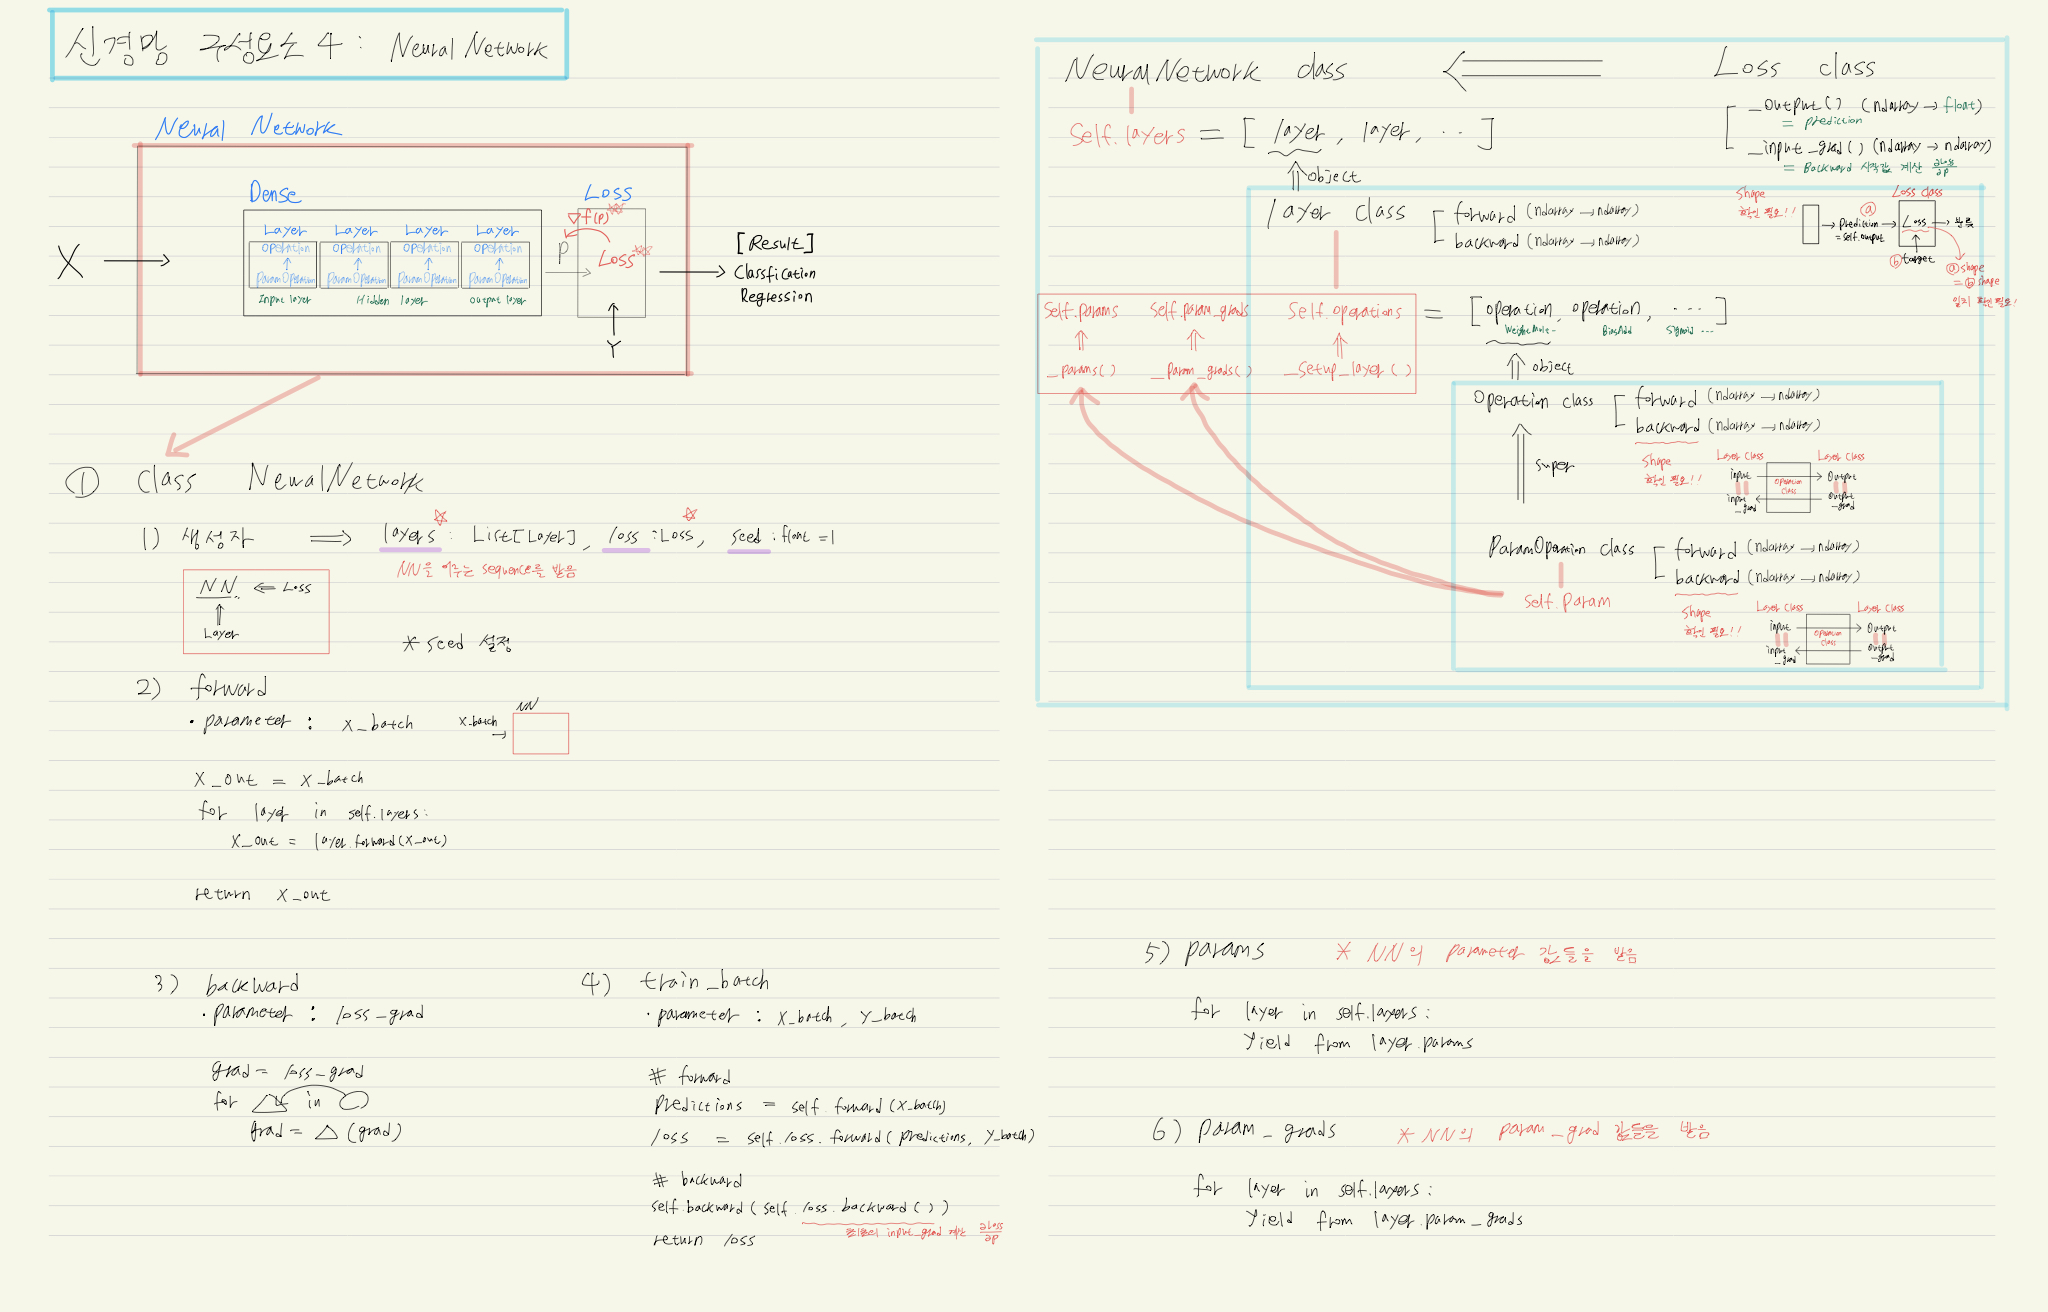 신경망 구성요소 4 : Neural Network
Neural Network
Dense
Loss
Layer Layer Layer Layer
operation operation operation operation
ParamOperation ParamOperation ParamOperation ParamOperation
Input layer Hidden layer output layer
X
▽f(p)
P
Loss
Y
[Result]
Classfication
Regression
① class NeuralNetwork
1) 생성자 ⟹ layers : List[Layer], loss : Loss, seed : float = 1
NN을 이루는 sequence를 받음
NN ⟸ Loss
Layer
* seed 설정
2) forward
· parameter : X_batch
X_batch → NN
X_out = X_batch
for layer in self.layers:
X_out = layer.forward(X_out)
return X_out
3) backward
· parameter : loss_grad
grad = loss_grad
for △ in ○
grad = △ (grad)
4) train_batch
· parameter : X_batch, Y_batch
# forward
predictions = self.forward(X_batch)
loss = self.loss.forward(predictions, Y_batch)
# backward
self.backward(self.loss.backward())
input_grad 계산 ∂Loss/∂p
return loss
NeuralNetwork class ⟸ Loss class
_output() (ndarray → float)
= prediction
_input_grad() (ndarray → ndarray)
= Backward 시작값 계산 ∂Loss/∂p
Self.layers = [ layer, layer, ... ]
object
layer class
forward (ndarray → ndarray)
backward (ndarray → ndarray)
Shape
확인 필요!!
Loss class
ⓐ
prediction → Loss → 분류
= self.output
ⓑ target
ⓐ shape
= ⓑ shape
일치 확인 필요!
Self.params Self.param_grads Self.operations = [operation, operation, ... ]
WeightMult.. BiasAdd Sigmoid ...
_params() _param_grads() _setup_layer()
object
Operation class
forward (ndarray → ndarray)
backward (ndarray → ndarray)
super
Shape
확인 필요!!
Layer class Layer class
input operation class output
input_grad output_grad
ParamOperation class
forward (ndarray → ndarray)
backward (ndarray → ndarray)
Self.param
Shape
확인 필요!!
Layer class Layer class
input operation class output
input_grad output_grad
5) params * NN의 parameter 값들을 받음
for layer in self.layers:
Yield from layer.params
6) param_grads * NN의 param_grad 값들을 받음
for layer in self.layers:
Yield from layer.param_grads